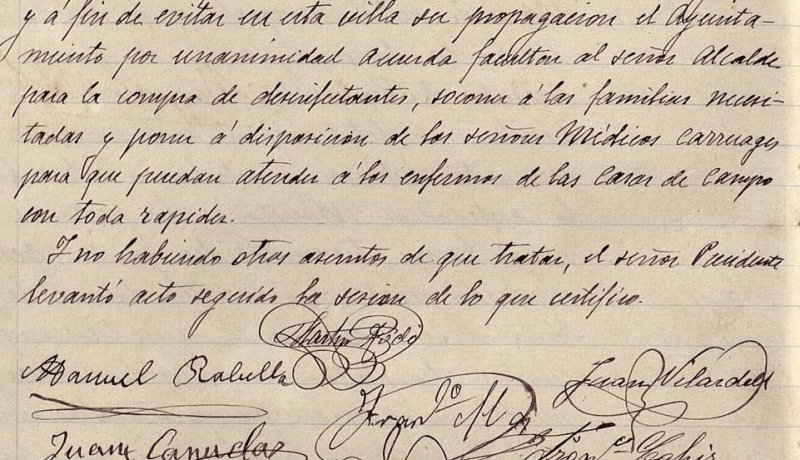 y á fin de evitar en esta villa su propagacion el Ayunta-
miento por unanimidad acuerda facultar al señor Alcalde
para la compra de desinfectantes, socorrer á las familias necesi-
tadas y poner á disposicion de los señores Médicos carruages
para que puedan atender á los enfermos de las casas de campo
con toda rapidez.
Y no habiendo otros asuntos de que tratar, el señor Presidente
levantó acto seguido la sesion de lo que certifico.
Martin
Manuel Rabella
Juan Vilardell
Juan